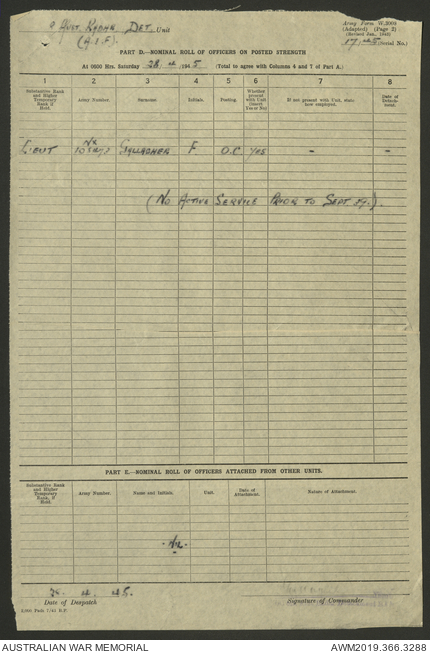 Aust. Det. Unit
(A.I.F.)
Army Form W.3008
(Adapted) (Page 2)
(Revised Jan., 1945)
17/45 (Serial No.)
PART D.—NOMINAL ROLL OF OFFICERS ON POSTED STRENGTH
At 0600 Hrs. Saturday 28. 4. 1945. (Total to agree with Columns 4 and 7 of Part A.)
1 2 3 4 5 6 7 8
Substantive Rank and Higher Temporary Rank if Held. Army Number. Surname. Initials. Posting. Whether present with Unit (Insert Yes or No) If not present with Unit, state how employed. Date of Detachment.
Lieut NX Gallagher F. O.C. Yes - -
(No Active Service Prior to Sept. 39.).
PART E.—NOMINAL ROLL OF OFFICERS ATTACHED FROM OTHER UNITS.
Substantive Rank and Higher Temporary Rank, if Held. Army Number. Name and Initials. Unit. Date of Attachment. Nature of Attachment.
4. 45.
Date of Despatch Signature of Commander
AUSTRALIAN WAR MEMORIAL AWM2019.366.3288